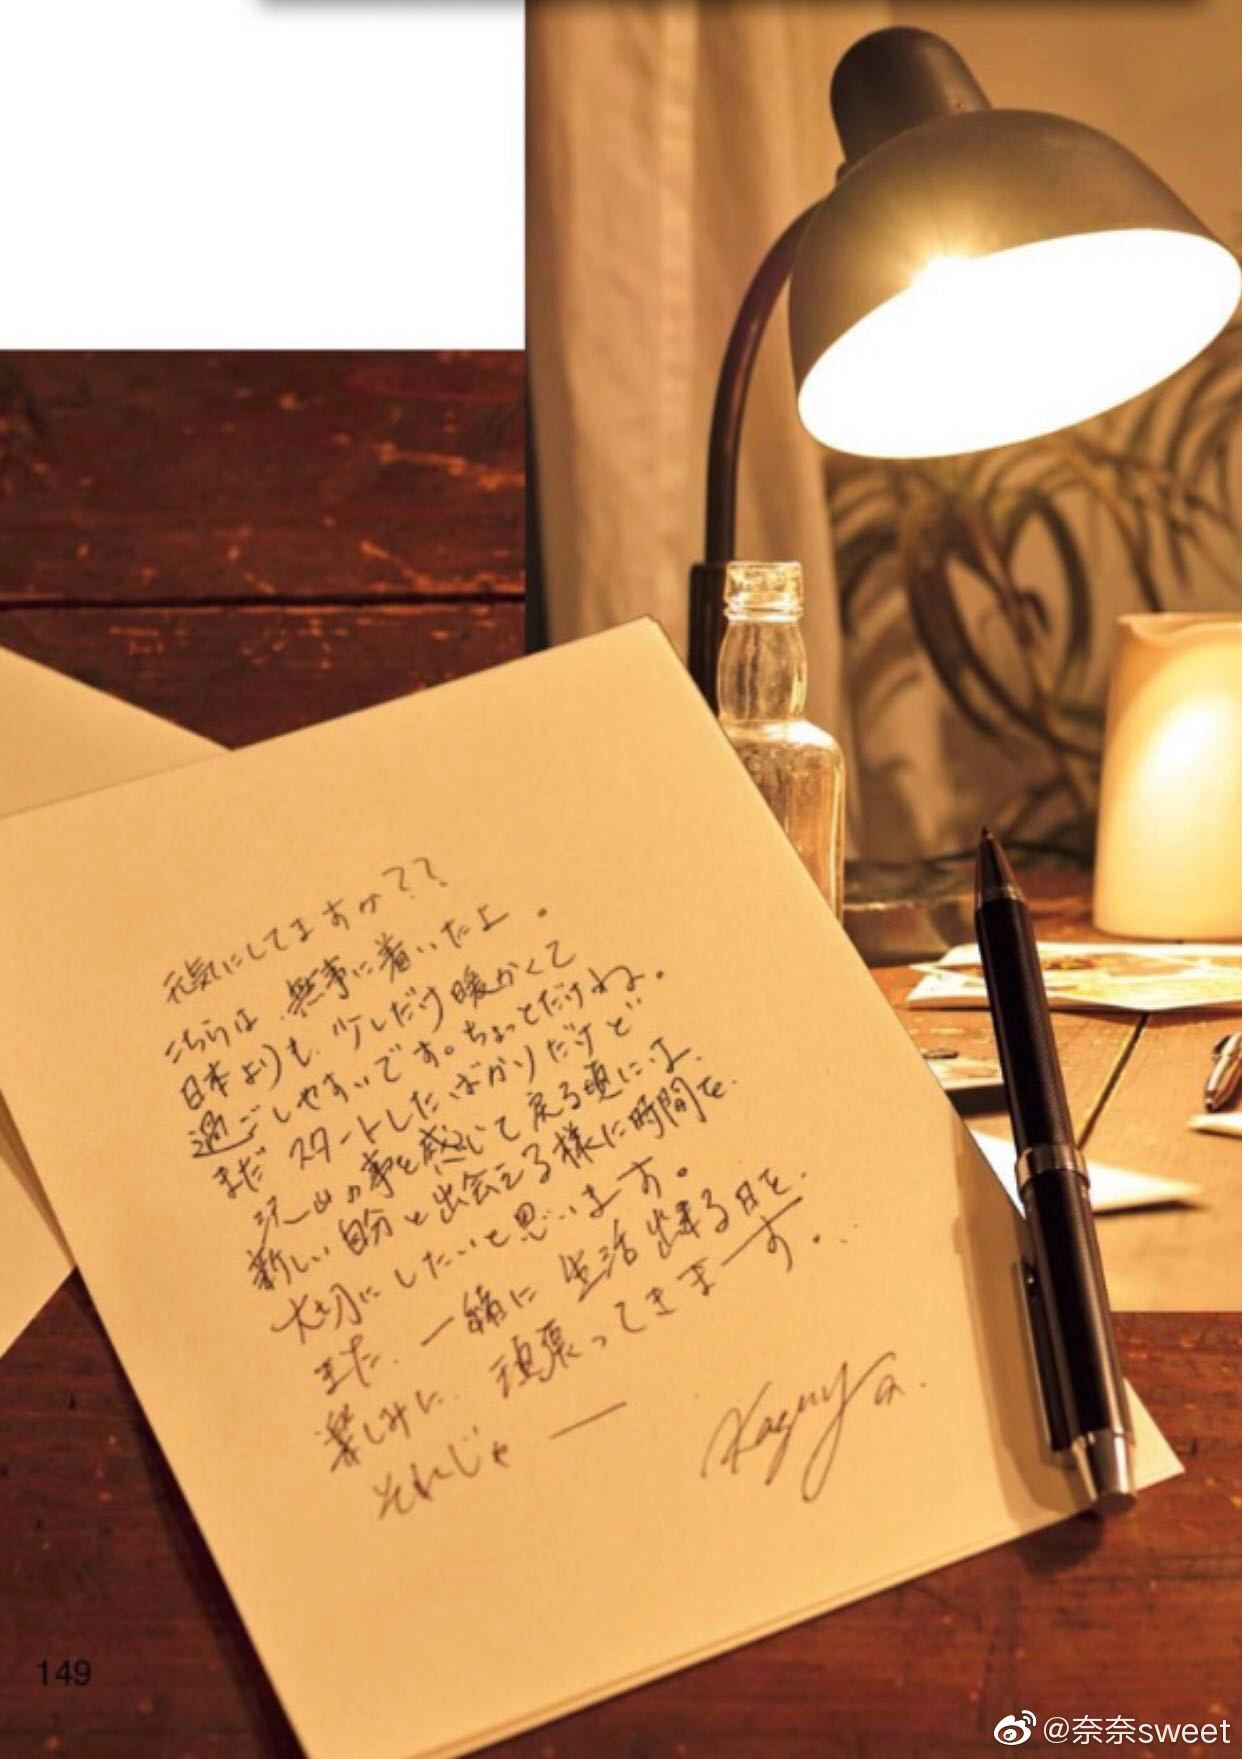 元気にしてますか??
こちらは、無事に着いたよ。
日本よりも、少しだけ暖かくて
過ごしやすいです。ちょっとだけね。
まだ スタートしたばかりだけど
沢山の事を感じて戻る頃には、
新しい自分と出会える様に時間を、
大切にしたいと思います。
また、一緒に 生活出来る日を、
楽しみに、頑張ってきます。
それじゃ ー
Kazuya.
149
@奈奈sweet